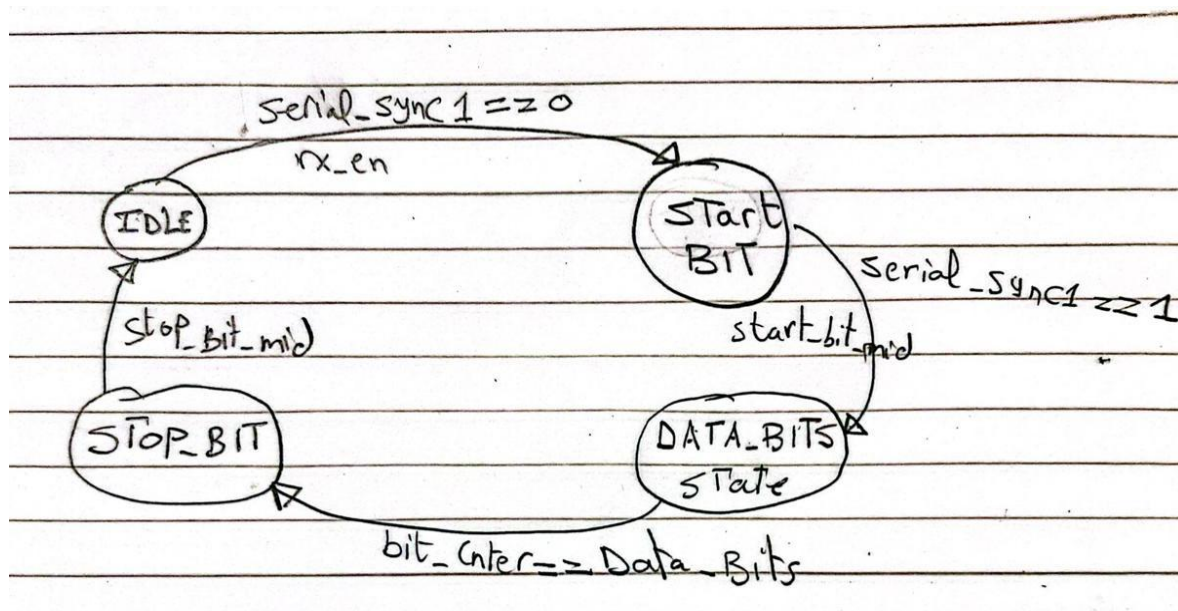 serial_sync1 == 0
rx_en
IDLE
START
BIT
serial_sync1 == 1
start_bit_mid
stop_Bit_mid
STOP_BIT
DATA_BITS
STate
bit_Cnter == Data_Bits